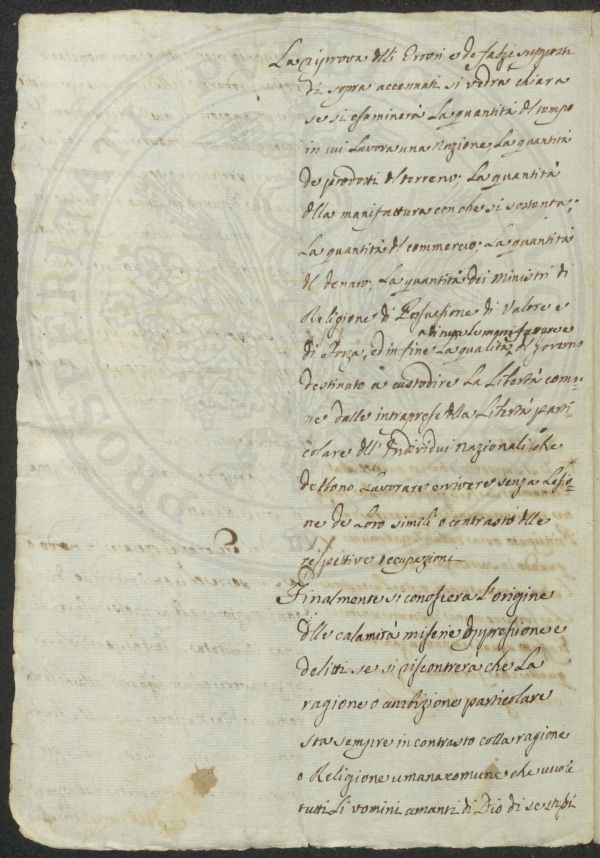 La riprova dlli Errori e de falzi supposti
di sopra accennati si vedrà chiara
se si esaminerà La quantità dl tempo
in cui Lavora una nazione; La quantità
de prodotti dl terreno; La quantità
dlla manifattura con che si sostenta;
La quantità dl commercio; La quantità
dl denaro; La quantità dei Ministri di
Religione di Persuasione di Valore e
di forza, ed in fine La qualità dl Governo
destinato à custodire La Libertà comu=
ne dalle intraprese dlla Libertà parti
colare dll' Individui Nazionali che
debbono Lavorare e vivere senza Lesio=
ne de Loro simili o contrasto dlle
respettive occupazioni
Finalmente si conoscerà L'origine
dlle calamità miserie oppressione e
delitti se si riscontrerà che La
ragione o ambizione particolare
sta sempre in contrasto colla ragione
o Religione umana comune che vuole
tutti Li uomini amanti di Dio di se stessi